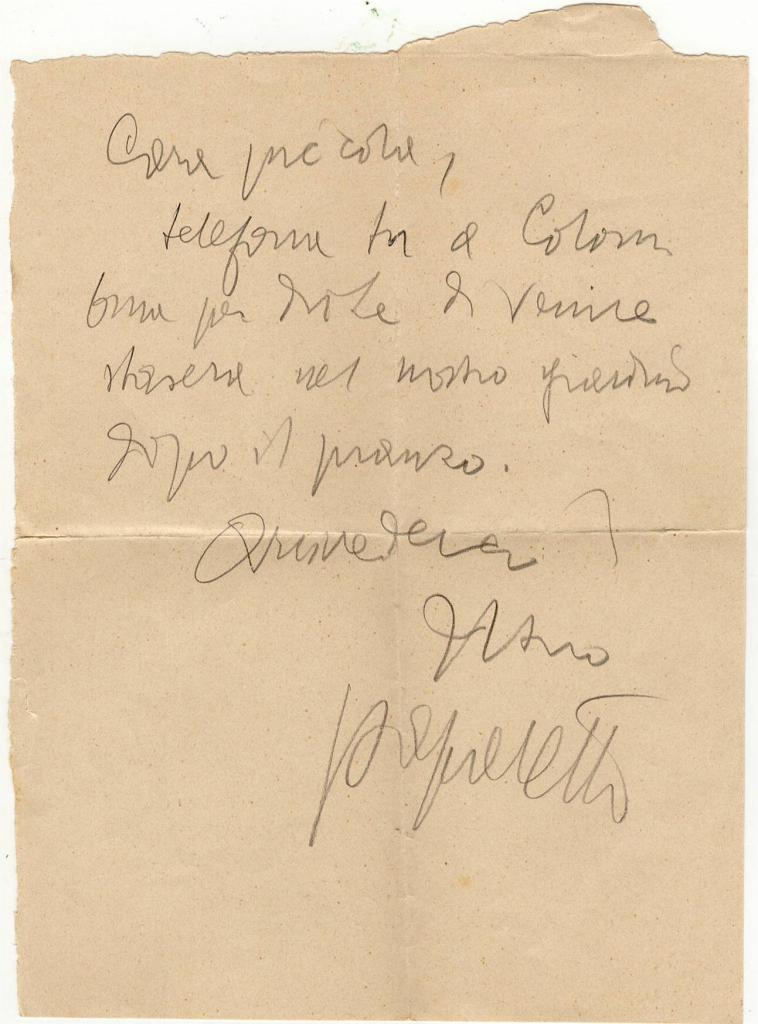 Cara piccola,
telefona tu a Colom
bina per dirle di venire
stasera nel nostro giardino
dopo il pranzo.
Arrivederci
Il tuo
papaletto